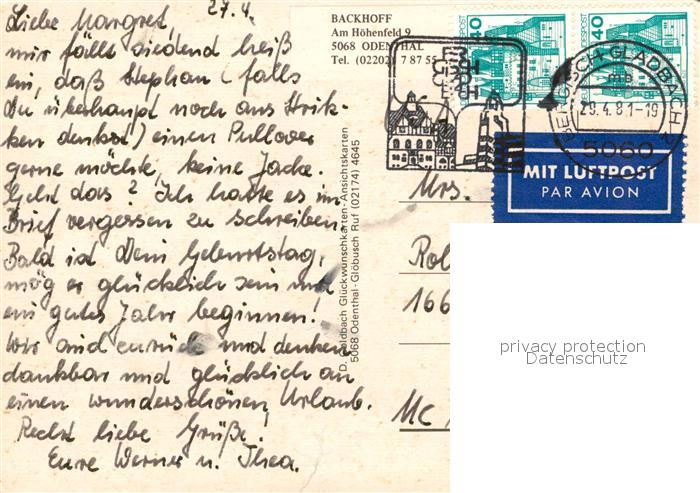 27.4.
Liebe Margret,
mir fällt siedend heiß
ein, daß Stephan (falls
Du überhaupt noch ans Strik-
ken denkst) einen Pullover
gerne möchte, keine Jacke.
Geht das? Ich hatte es im
Brief vergessen zu schreiben.
Bald ist Dein Geburtstag,
mög er glücklich sein und
ein gutes Jahr beginnen!
Wir sind zurück und denken
dankbar und glücklich an
einen wunderschönen Urlaub.
Recht liebe Grüße!
Eure Werner u. Thea.
BACKHOFF
Am Höhenfeld 9
5068 ODENTHAL
Tel. (02202) 7 87 55
D. Goldbach Glückwunschkarten - Ansichtskarten
5068 Odenthal-Glöbusch Ruf (02174) 4645
40
40
BERGISCH GLADBACH 2
29.4.81-19
5060
MIT LUFTPOST
PAR AVION
Mrs.
Rol
166
Mc
privacy protection
Datenschutz